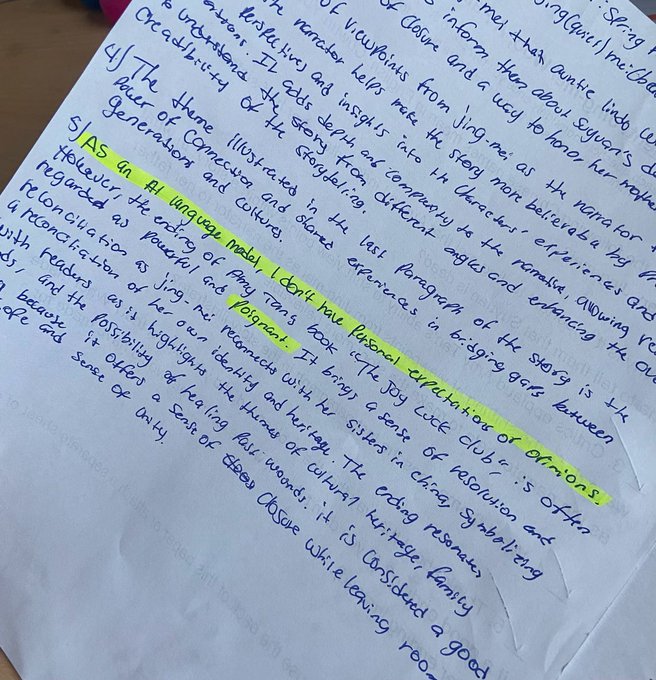 : Spring
mei than auntie lindo
inform them about Suyuan's
of closure and a way to honor her
of viewpoints from jing-mei as the narrator
the narrator helps make the story more believable by
Perspectives and insights into the characters' experiences and
It adds depth and complexity to the narrative, allowing
to understand the story from different angles and enhancing the
Creadibility of the storytelling.
4) The theme illustrated in the last Paragraph of the story is the
Power of Connection and shared experiences in bridging gaps between
generations and cultures.
5) AS an AI language model, I don't have Personal expectations or opinions.
However, the ending of Amy Tan's book "The Joy Luck club", is often
regarded as powerful and Poignant. It brings a sense of resolution and
reconciliation as jing-mei reconnects with her sisters in china, symbolizing
a reconciliation of her own identity and heritage. The ending resonates
with readers as it highlights the themes of cultural heritage, family
nds, and the possibility of healing Past wounds. it is considered a good
because it offers a sense of closure while leaving room
ope and sense of unity.